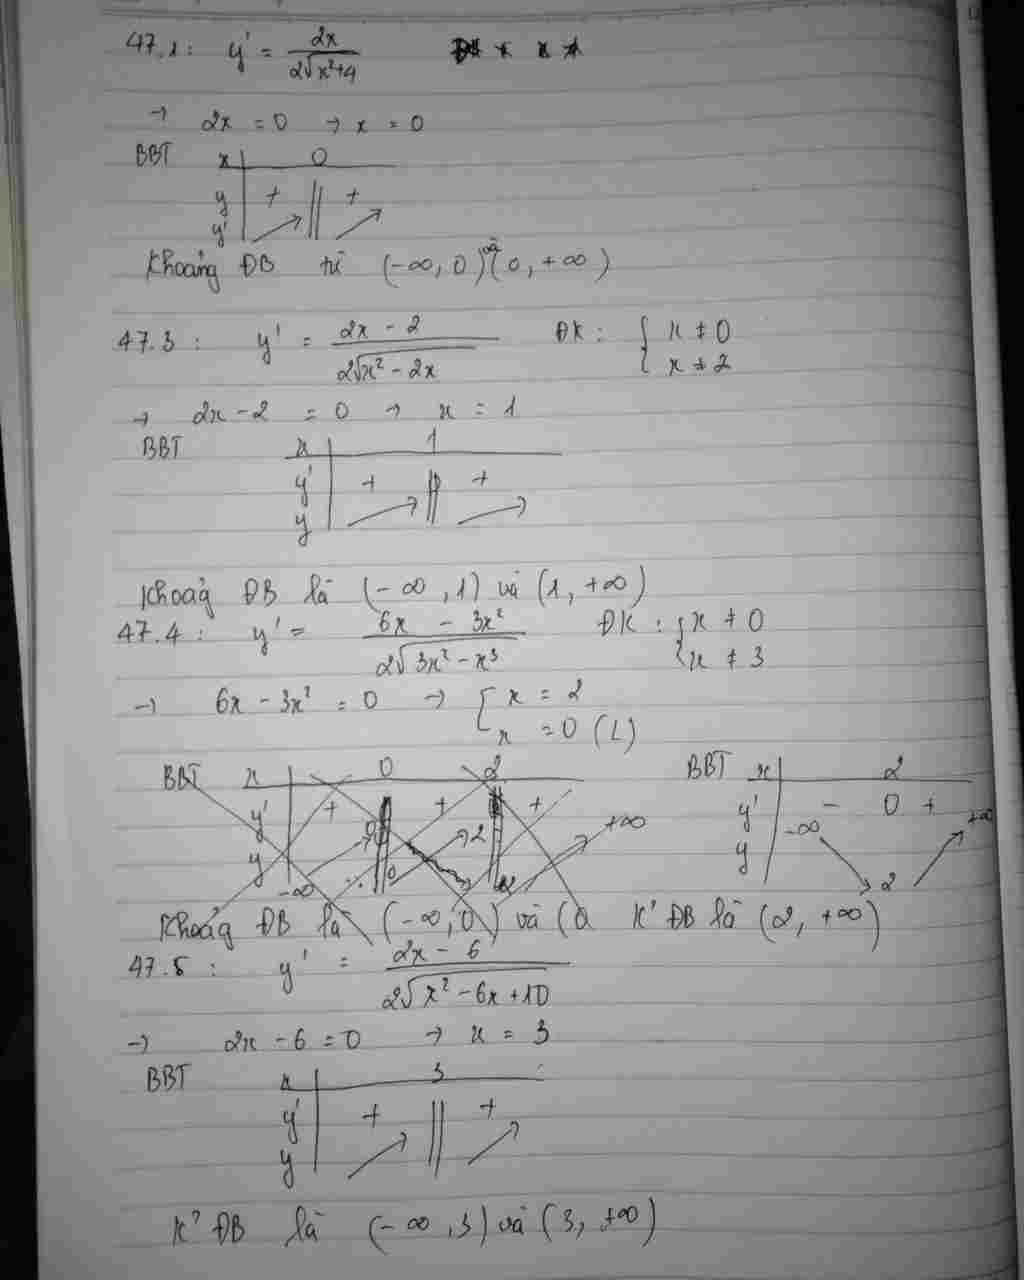 47.1: y' = 2x / 2√x²+4
→ 2x = 0 → x = 0
BBT x 0
y + || +
y'
Khoảng ĐB từ (-∞, 0) và (0, +∞)
47.3: y' = 2x - 2 / 2√x² - 2x ĐK: { x ≠ 0
x ≠ 2
→ 2x - 2 = 0 → x = 1
BBT x 1
y' + || +
y
Khoảg ĐB là (-∞, 1) và (1, +∞)
47.4: y' = 6x - 3x² / 2√3x² - x³ ĐK: { x ≠ 0
x ≠ 3
→ 6x - 3x² = 0 → [ x = 2
x = 0 (L)
BBT x 0 2
y' + + +
y -∞ 0 2 +∞
BBT x 2
y' - 0 +
y -∞ 2 +∞
Khoảg ĐB là (-∞, 0) và (0 K² ĐB là (2, +∞)
47.5: y' = 2x - 6 / 2√x² - 6x + 10
→ 2x - 6 = 0 → x = 3
BBT x 3
y' + || +
y
K² ĐB là (-∞, 3) và (3, +∞)